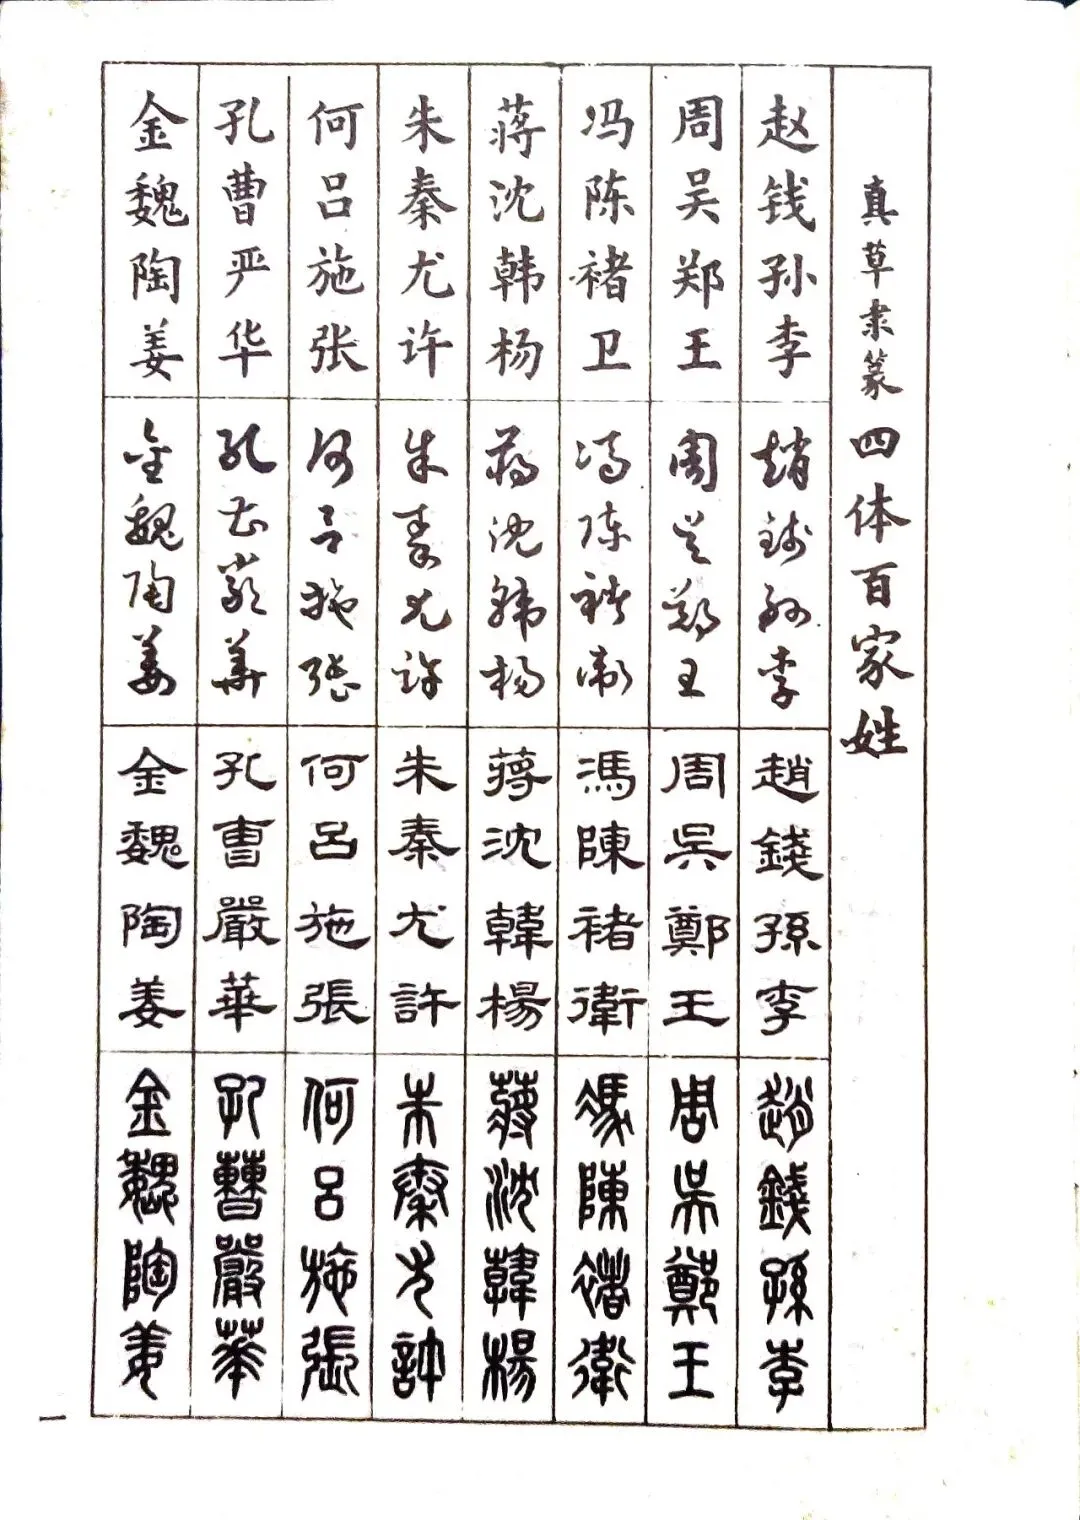 真草隶篆四体百家姓
赵钱孙李
趙錢孫李
趙錢孫李
趙錢孫李
周吴郑王
周吳鄭王
周吳鄭王
周吳鄭王
冯陈褚卫
馮陳褚衛
馮陳褚衛
馮陳褚衛
蒋沈韩杨
蔣沈韓楊
蔣沈韓楊
蔣沈韓楊
朱秦尤许
朱秦尤許
朱秦尤許
朱秦尤許
何吕施张
何呂施張
何呂施張
何呂施張
孔曹严华
孔曹嚴華
孔曹嚴華
孔曹嚴華
金魏陶姜
金魏陶姜
金魏陶姜
金魏陶姜
一